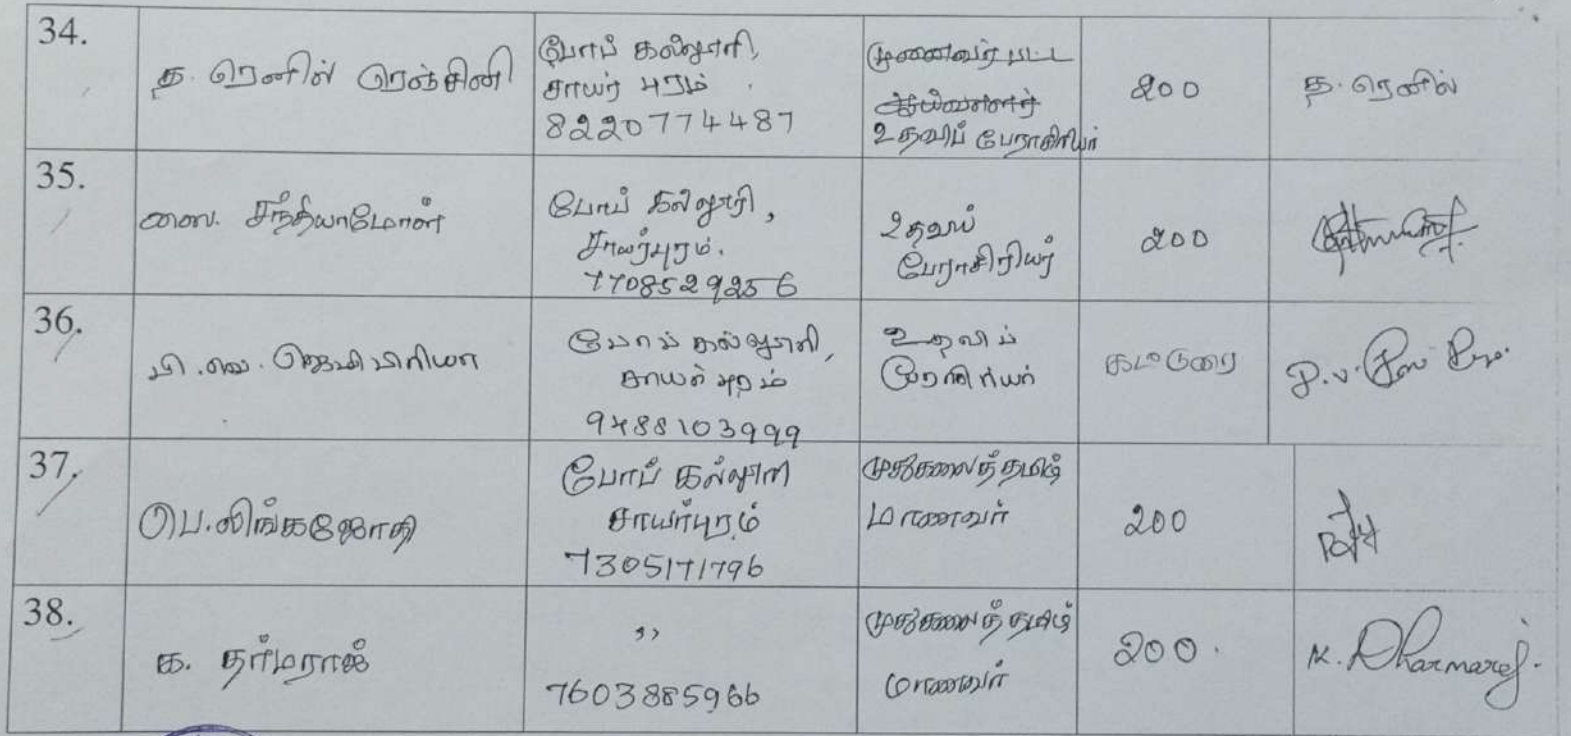 34.
த. ரெனின் ரெஞ்சினி
போப் கல்லூரி,
சாயர் புரம்
8220774487
முனைவர் பட்ட
ஆய்வாளர்
உதவிப் பேராசிரியர்
200
த. ரெனின்
35.
வை. சந்தியாமோள்
போப் கல்லூரி,
சாயர்புரம்.
7708529256
உதவிப்
பேராசிரியர்
200
36.
பி.வை. ஜெமி பிரியா
போப் கல்லூரி,
சாயர் புரம்
9488103999
உதவிப்
பேராசிரியர்
கட்டுரை
P.V.
37.
பெ.லிங்கஜோதி
போப் கல்லூரி
சாயர்புரம்
7305171796
முதுகலைத் தமிழ்
மாணவர்
200
38.
க. தர்மராஜ்
,,
7603885966
முதுகலைத் தமிழ்
மாணவர்
200.
K. Dharmaraj.